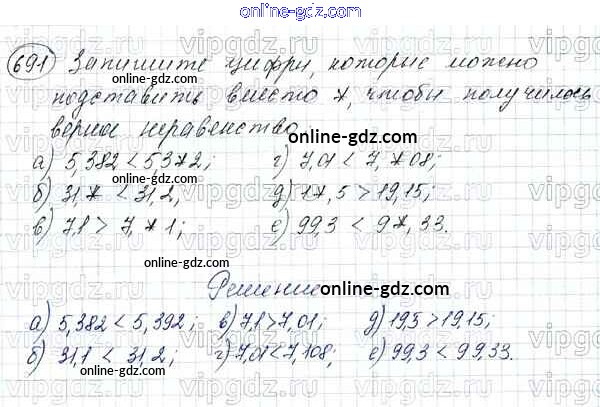 online-gdz.com
691 Запишите цифры, которые можно
подставить вместо *, чтобы получилось
верное неравенство
online-gdz.com
online-gdz.com
а) 5,382 < 5,3*2; г) 7,01 < 7,*08;
б) 31,* < 31,2; д) 1*,5 > 19,15;
в) 7,1 > 7,*1; е) 99,3 < 9*,33.
online-gdz.com
online-gdz.com
Решение
online-gdz.com
а) 5,382 < 5,392; в) 7,1 > 7,01; д) 19,5 > 19,15;
б) 31,1 < 31,2; г) 7,01 < 7,108; е) 99,3 < 99,33.
online-gdz.com
online-gdz.com